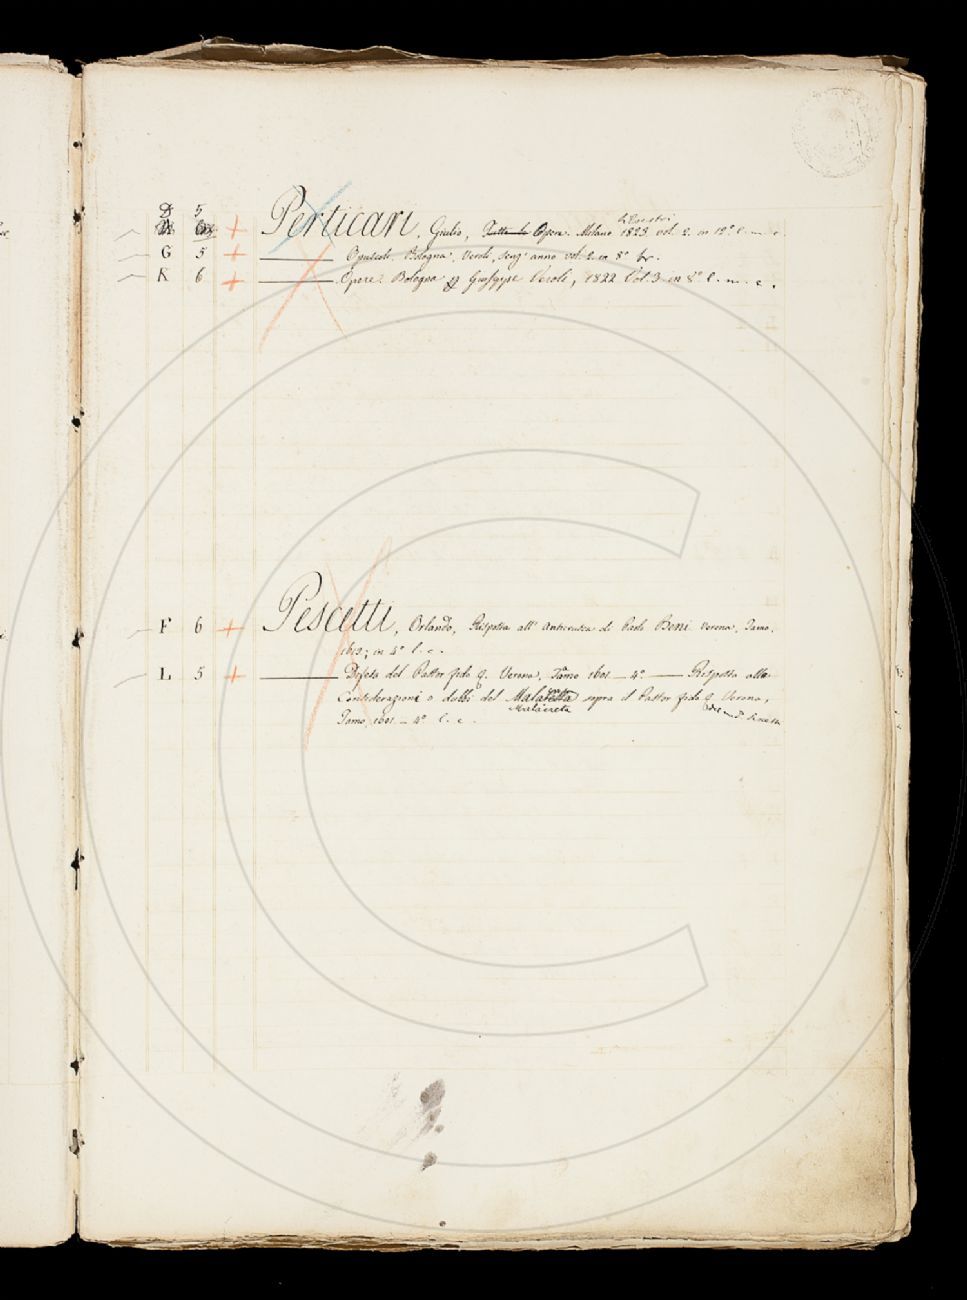 D 5
Perticari, Giulio, Tutte le Opere. Milano 1823 vol. 2. in 12º l. m. c.
G 5 + Opuscoli. Bologna, Veroli, senz' anno vol. 2. in 8º br.
K 6 + Opere. Bologna Giuseppe Veroli, 1822 Vol. 3 in 8º l. m. c.
F 6 + Pescetti, Orlando, Risposta all' Anticrusca di Paolo Beni Verona, Tamo,
1613, in 4º l. c.
L 5 + Difesa del Pastor fido Verona, Tamo 1601 — 4º — Risposta alle
Considerazioni o dubbi del sopra il Pastor fido Verona,
Malacreta
Tamo, 1601 — 4º l. c.